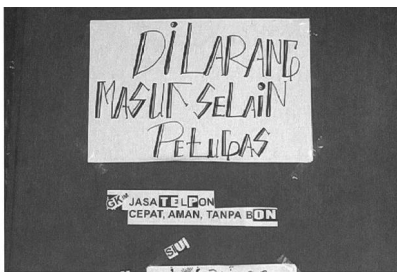 DiLARANG
MASUK SELAiN
PETUGAS
JASA TELPON
CEPAT, AMAN, TANPA BON